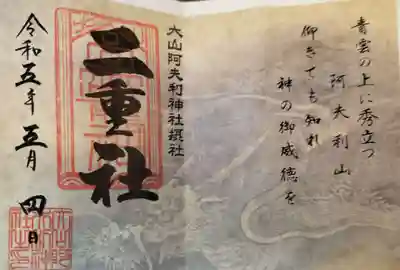 青雲の上に秀立つ
阿夫利山
仰きても知れ
神の御威徳を
大山阿夫利神社摂社
二重社
令和五年五月四日